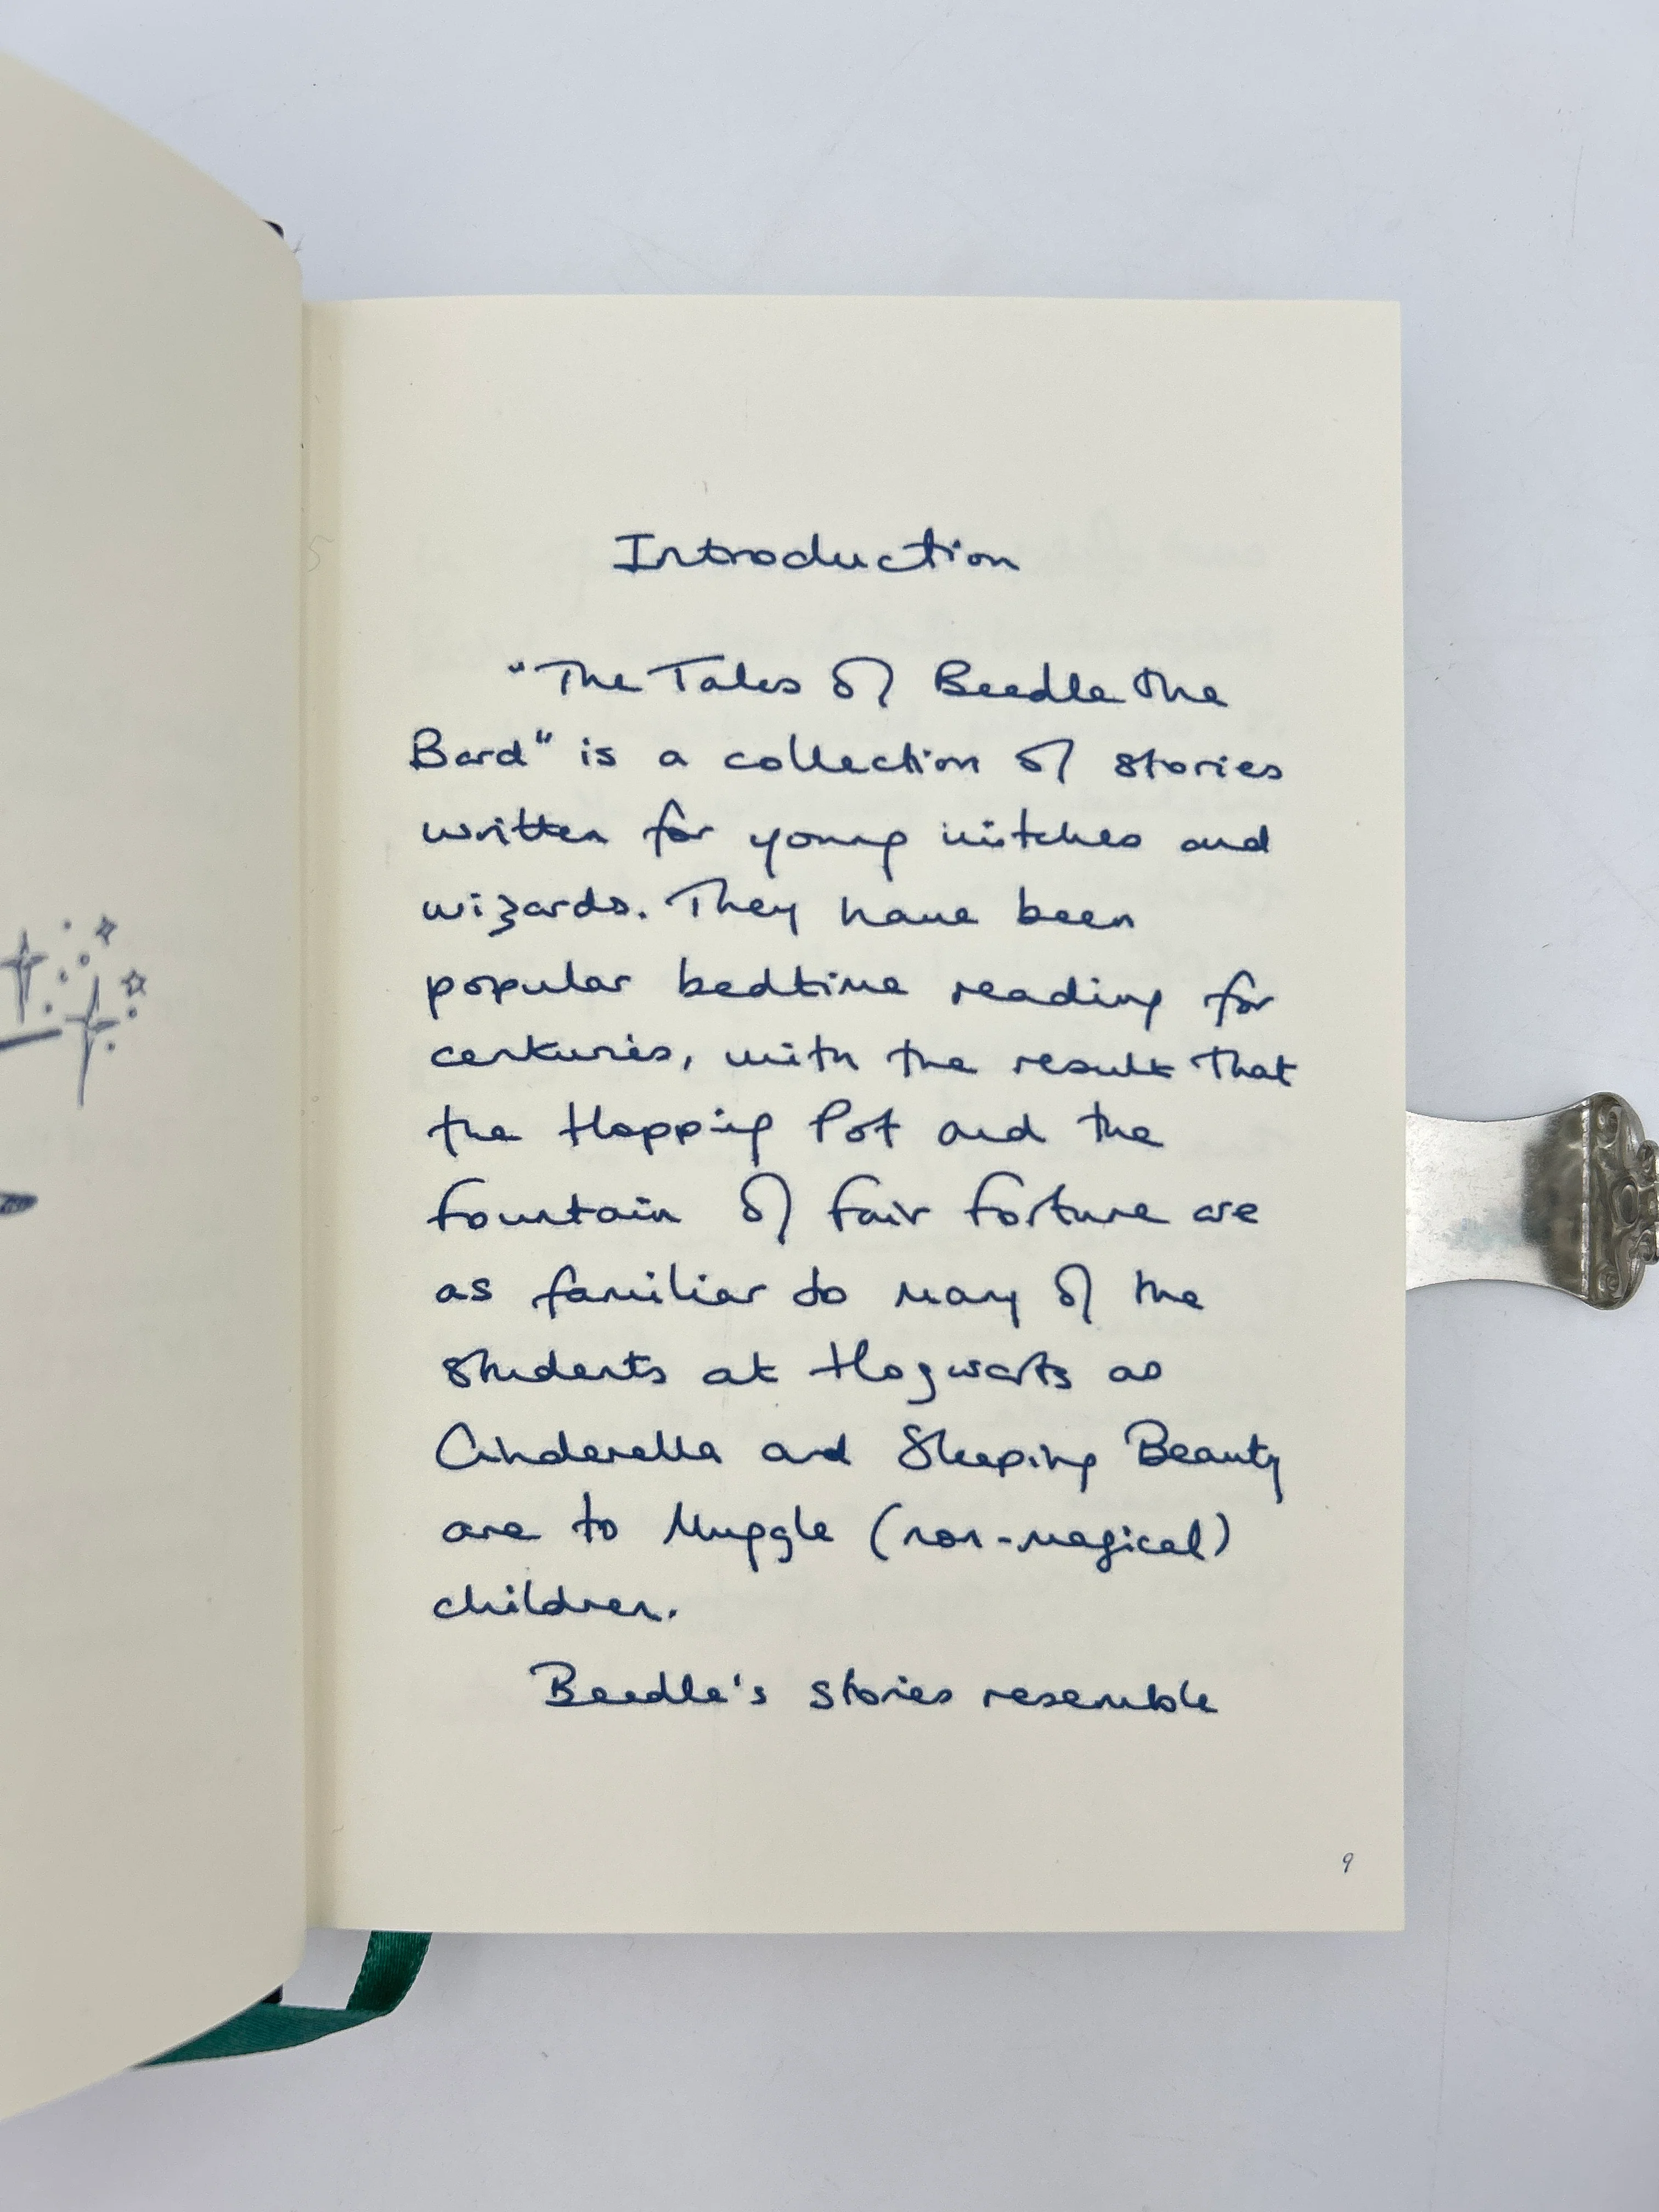 Introduction
"The Tales of Beedle the
Bard" is a collection of stories
written for young witches and
wizards. They have been
popular bedtime reading for
centuries, with the result that
the Hopping Pot and the
Fountain of Fair Fortune are
as familiar to many of the
students at Hogwarts as
Cinderella and Sleeping Beauty
are to Muggle (non-magical)
children.
Beedle's stories resemble
9